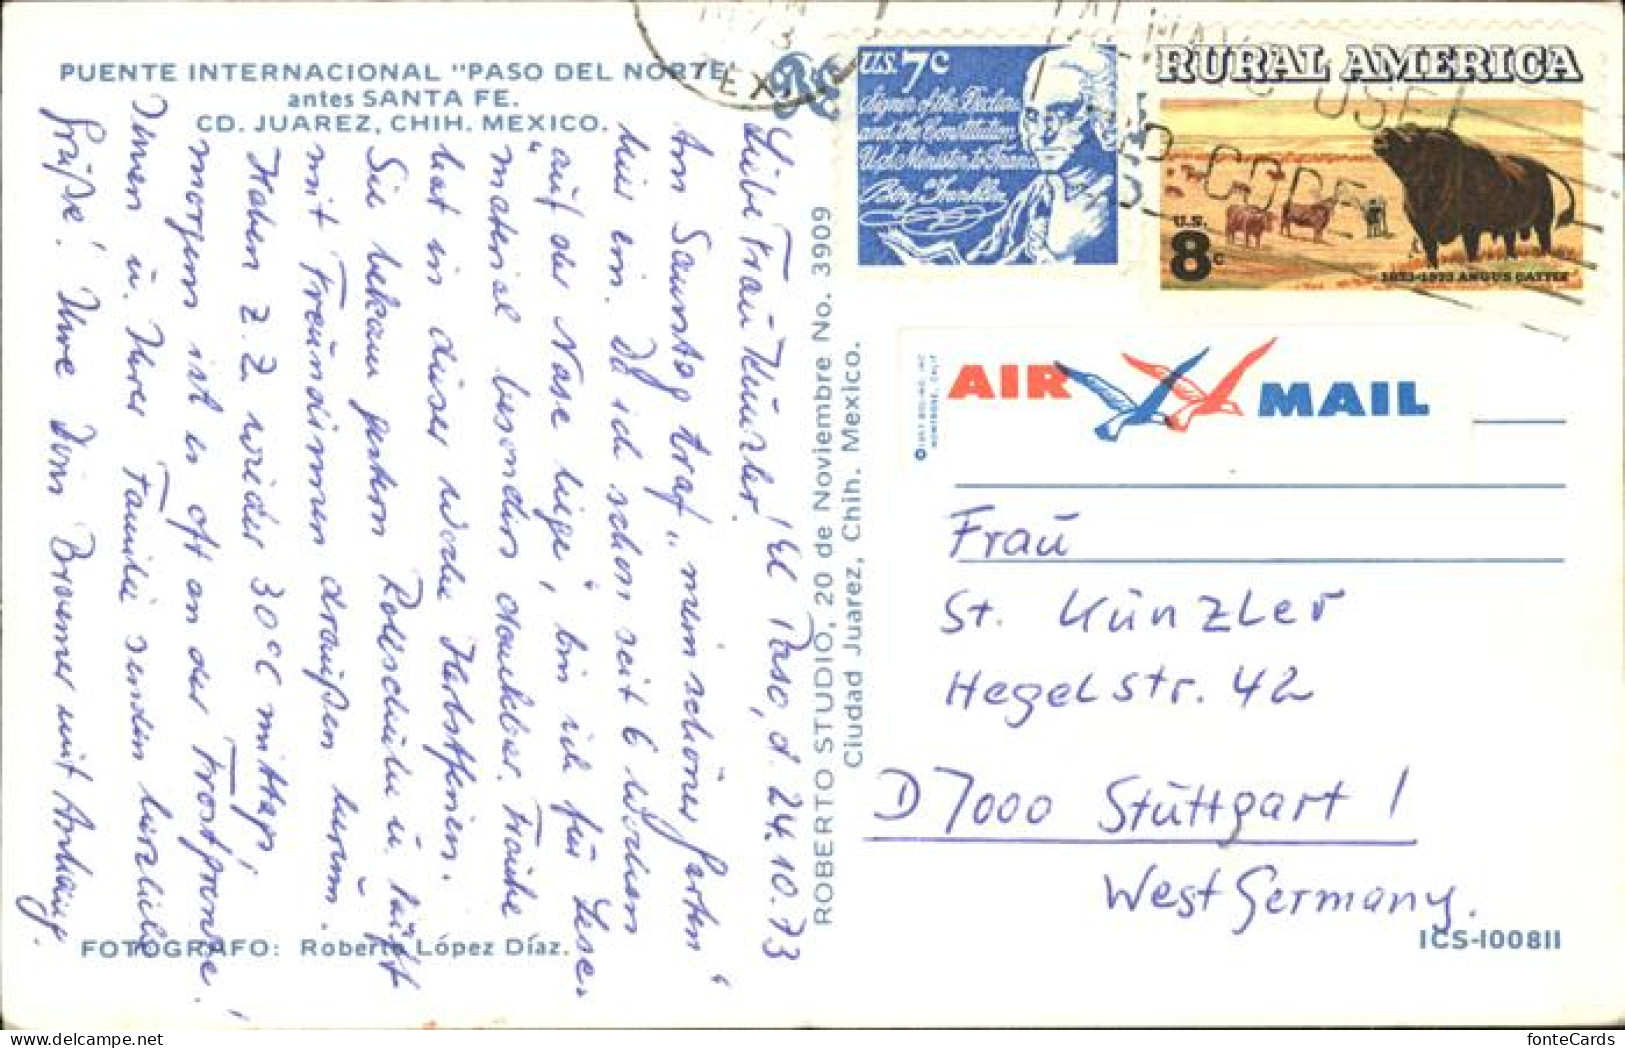 PUENTE INTERNACIONAL "PASO DEL NORTE"
antes SANTA FE.
CD. JUAREZ, CHIH. MEXICO.
Liebe Frau Künzler! El Paso, d. 24.10.73
Am Samstag traf „mein schöner Garten"
hier ein. Da ich schon seit 6 Wochen
auf der Nase liege, bin ich für Lese-
material besonders dankbar. Franke
hat in dieser Woche Herbstferien.
Sie bekam gestern Rollschuhe u. läuft
mit Freundinnen draußen herum.
Haben z.Z. wieder 30°C mittags,
morgens ist es oft an der Frostgrenze!
Ihnen u. Ihrer Familie senden herzliche
Grüße! Ihre Brauner mit Anhang.
FOTOGRAFO: Roberto López Díaz.
ROBERTO STUDIO, 20 de Noviembre No. 3909
Ciudad Juarez, Chih. Mexico.
TEX
U.S. 7c
Signer of the Declara
and the Constitution
U.S. Minister to France
Benj Franklin
RURAL AMERICA
U.S.
8c
1873-1973 ANGUS CATTLE
USE
ZIP CODE
AIR MAIL
Frau
St. Künzler
Hegelstr. 42
D 7000 Stuttgart 1
West Germany.
ICS-100811
fonteCards